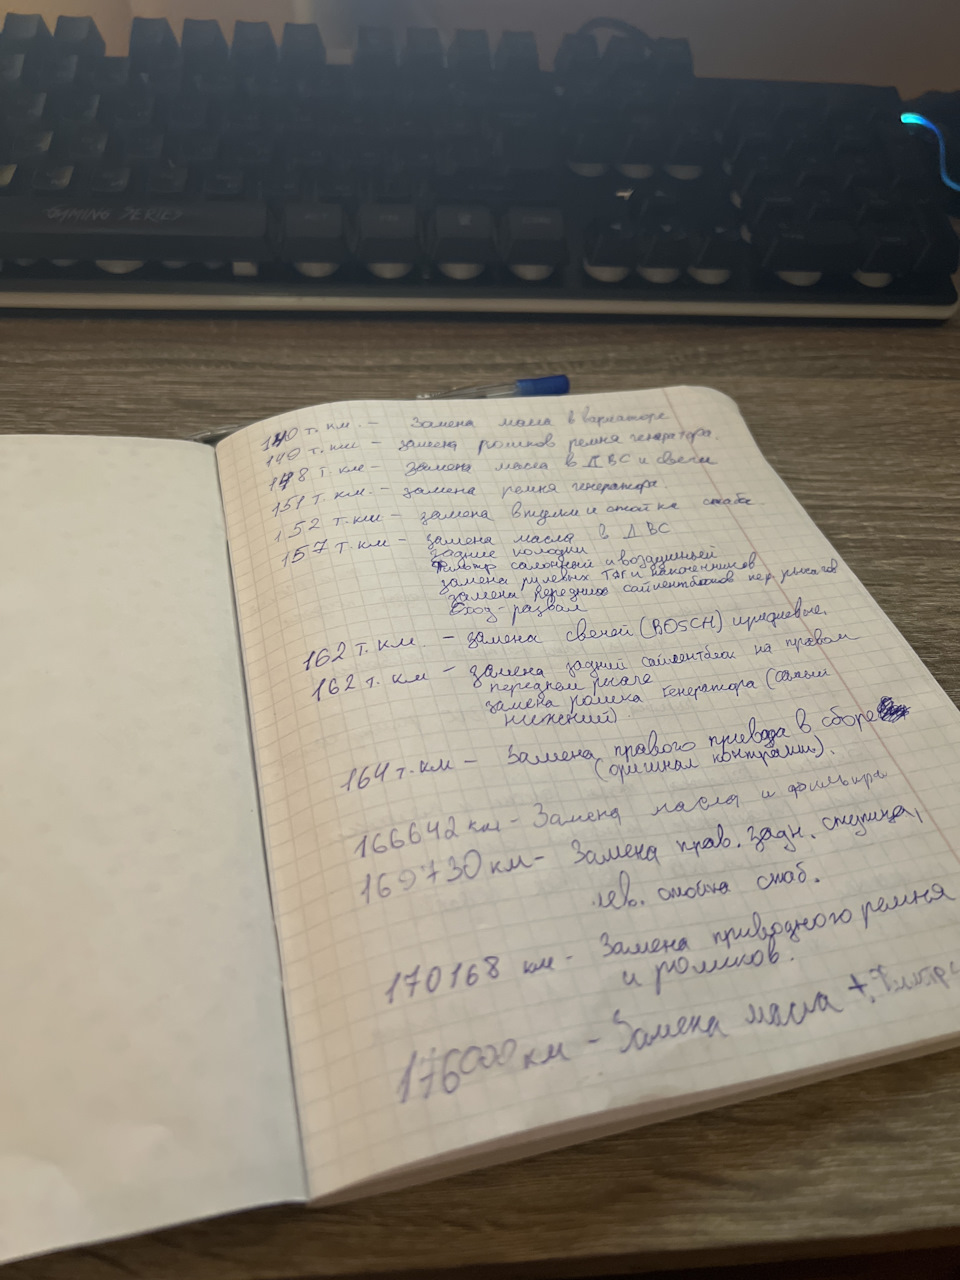 GAMING SERIES
140 т. км. - Замена масла в вариаторе
149 т. км - замена роликов ремня генератора.
148 т. км - Замена масла в ДВС и свечи
151 т. км. - замена ремня генератора.
152 т. км - замена втулки и стойки стаба
157 т. км - замена масла в ДВС
задние колодки
Фильтр салонный и воздушный
замена рулевых тяг и наконечников
замена передних сайлентблоков пер. рычагов
Сход-развал
162 т. км. - замена свечей (BOSCH) иридиевые.
162 т. км - замена задний сайлентблок на правом
переднем рычаге
замена ролика генератора (самый
нижний)
164 т. км - Замена правого привода в сборе
(оригинал контрактн).
166642 км - Замена масла и фильтра
169730 км - Замена прав. задн. ступица,
лев. стойка стаб.
170168 км - Замена приводного ремня
и роликов.
176000 км - Замена масла +